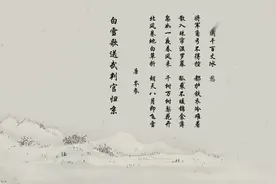 白雪歌送武判官归京
唐 岑参
北风卷地白草折 胡天八月即飞雪
忽如一夜春风来 千树万树梨花开
散入珠帘湿罗幕 狐裘不暖锦衾薄
将军角弓不得控 都护铁衣冷难着
阑干百丈冰 愁